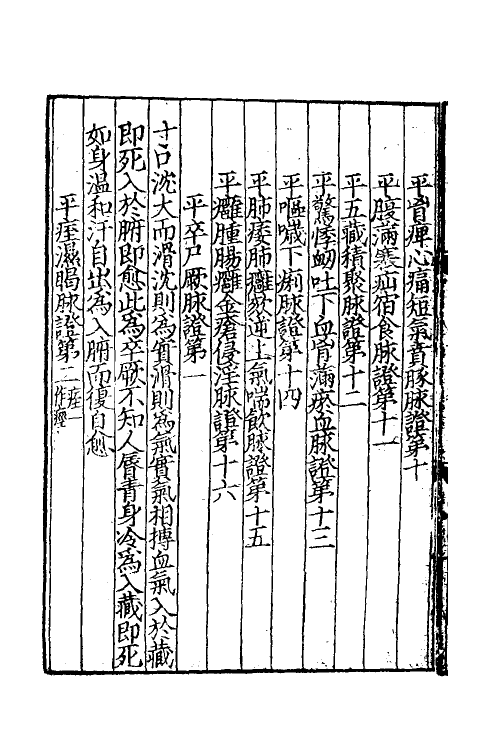 平胷痺心痛短氣賁豚脉證第十
平腹滿寒疝宿食脉證第十一
平五藏積聚脉證第十二
平驚悸衂吐下血胷滿瘀血脉證第十三
平嘔噦下痢脉證第十四
平肺痿肺癰欬逆上氣啖飲脉證第十五
平癰腫腸癰金瘡侵淫脉證第十六
平卒尸厥脉證第一
寸口沈大而滑沈則為實滑則為氣實氣相搏血氣入於藏
即死入於腑即愈此為卒厥不知人脣青身冷為入藏即死
如身溫和汗自出為入腑而復自愈
平痓濕暍脉證第二痓一作痙